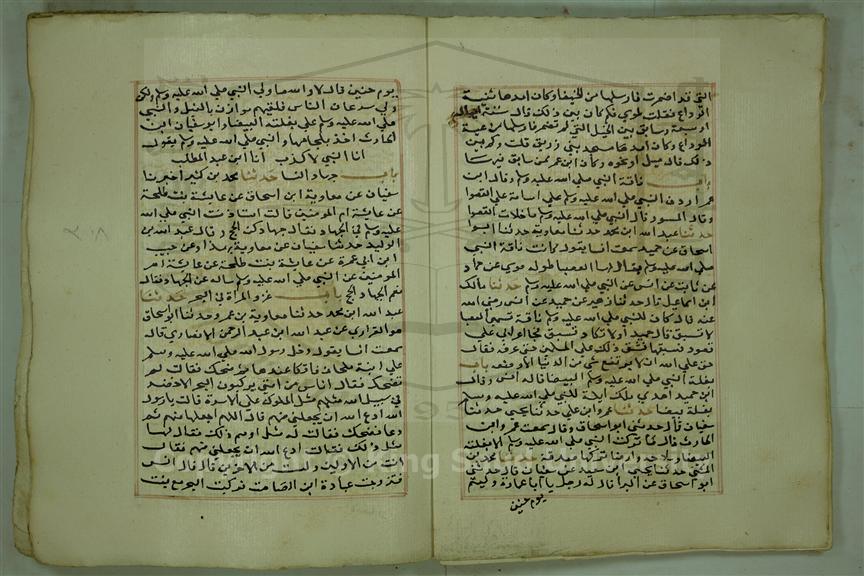 التي قد اضمرت فارسلها من الحفيا وكان امدها ثنية
الوداع فقلت لموسي فكم كان بين ذلك قال ستة اميال
او سبعة وسابق بين الخيل التي لم تضمر فارسلها من ثنية
الوداع وكان امدها مسجد بني زريق قلت وكم بين
ذلك قال ميل او نحوه وكان ابن عمر ممن سابق فيها
باب ناقة النبي صلي الله عليه وسلم وقال ابن
عمر اردف النبي صلي الله عليه وسلم اسامة علي القصوا
وقال المسور قال النبي صلي الله عليه وسلم ما خلات القصوا
حدثنا عبد الله ابن محمد حدثنا معاوية حدثنا ابوا
اسحاق عن حميد سمعت انسا يقول كانت ناقة النبي
صلي الله عليه وسلم يقال لها العضبا طوله موسي عن حماد
عن ثابت عن انس عن النبي صلي الله عليه وسلم حدثنا مالك
ابن اسماعيل قال حدثنا زهير عن حميد عن انس رضي الله
عنه قال كان للنبي صلي الله عليه وسلم ناقة تسمي العضبا
لا تسبق قال حميد او لا تكاد تسبق فجا اعرابي علي
قعود فسبقها فشق ذلك علي المسلمين حتي عرفه فقال
حق علي الله ان لا يرتفع شي من الدنيا الا وضعه باب
بغلة النبي صلي الله عليه وسلم البيضا قاله انس وقال
ابن حميد اهدي ملك ايلة للنبي صلي الله عليه وسلم
بغلة بيضا حدثنا عمرو ابن علي حدثنا يحيي حدثنا
سفيان قال حدثني ابو اسحاق وقال سمعت عمرو ابن
الحارث قال ما تركت النبي صلي الله عليه وسلم الا بغلته
البيضا وسلاحه وارضا تركها صدقة حدثنا محمد بن
المثني حدثنا يحيي ابن سعيد عن سفيان قال حدثني
ابو اسحاق عن البرا قال له رجل يا ابا عمارة وليتم
يوم حنين
يوم حنين قال لا والله ما ولي النبي صلي الله عليه وسلم ولكن
ولي سرعان الناس فلقيهم هوازن بالنبل والنبي
صلي الله عليه وسلم علي بغلته البيضا وابو سفيان ابن
الحارث اخذ بلجامها والنبي صلي الله عليه وسلم يقول
انا النبي لا كذب انا ابن عبد المطلب
باب جهاد النسا حدثنا محمد بن كثير اخبرنا
سفيان عن معاوية ابن اسحاق عن عايشة بنت طلحة
عن عايشة ام المومنين قالت استاذنت النبي صلي الله
عليه وسلم في الجهاد فقال جهادكن الحج وقال عبد الله بن
الوليد حدثنا سفيان عن معاوية بهذا وعن حبيب
ابن ابي عمرة عن عايشة بنت طلحة عن عايشة ام
المومنين عن النبي صلي الله عليه وسلم ساله عن الجهاد فقال
نعم الجهاد الحج باب غزو المراة في البحر حدثنا
عبد الله ابن محمد حدثنا معاوية بن عمرو حدثنا ابو اسحاق
هو الفزاري عن عبد الله ابن عبد الرحمن الانصاري قال
سمعت انسا يقول دخل رسول الله صلي الله عليه وسلم
علي ابنة ملحان فاتكا عندها ثم ضحك فقالت لم
تضحك فقال اناس من امتي يركبون البحر الاخضر
في سبيل الله مثلهم مثل الملوك علي الاسرة قالت يا رسول
الله ادع الله ان يجعلني منهم قال اللهم اجعلها منهم ثم
عاد فضحك فقالت له مثل او مم ذلك فقال لها
مثل ذلك فقالت ادع الله ان يجعلني منهم فقال
انت من الاولين ولست من الاخرين قال قال انس
فتزوجت عبادة ابن الصامت فركبت البحر مع بنت